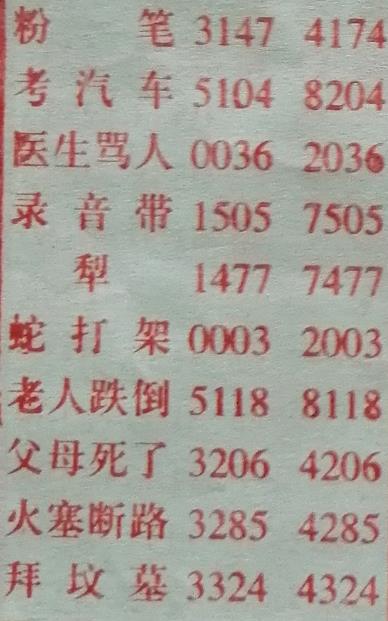 粉笔 3147 4174
考汽车 5104 8204
医生骂人 0036 2036
录音带 1505 7505
犁 1477 7477
蛇打架 0003 2003
老人跌倒 5118 8118
父母死了 3206 4206
火塞断路 3285 4285
拜坟墓 3324 4324